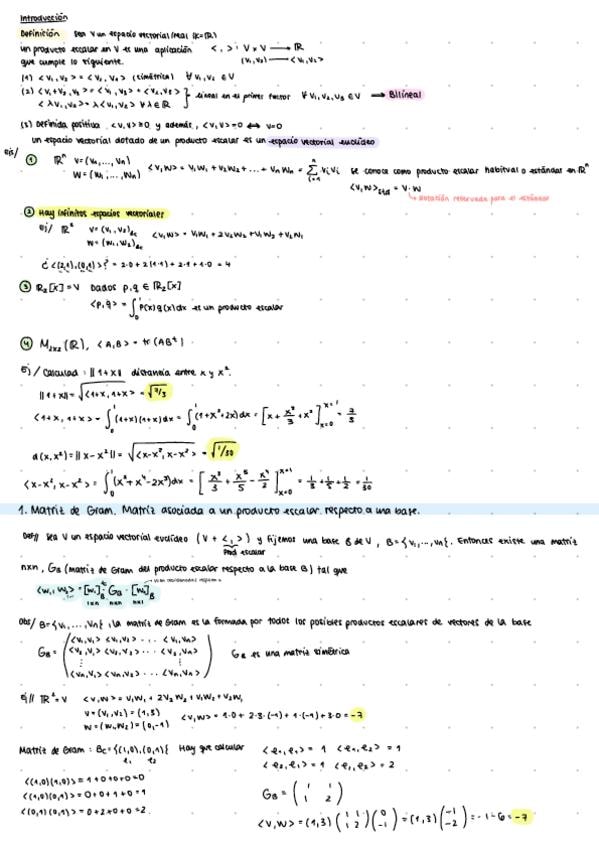 Introducción
Definición Sea V un espacio vectorial real (K=ℝ)
Un producto escalar en V es una aplicación < , > : V × V → ℝ
que cumple lo siguiente. (v₁,v₂) → <v₁,v₂>
(1) <v₁,v₂> = <v₂,v₁> (simétrica) ∀v₁,v₂ ∈ V
(2) <v₁+v₂,v₃> = <v₁,v₃> + <v₂,v₃> } lineal en el primer factor ∀ v₁,v₂,v₃ ∈ V → Bilineal
<λv₁,v₂> = λ<v₁,v₂> ∀λ∈ℝ
(3) Definida positiva <v,v> ≥ 0 y además, <v,v> = 0 ⟺ v=0
Un espacio vectorial dotado de un producto escalar es un espacio vectorial euclídeo
ejs/ ① ℝⁿ v=(v₁,...,vₙ)
w=(w₁,...,wₙ) <v,w> = v₁w₁ + v₂w₂ + ... + vₙwₙ = Σ vᵢvᵢ se conoce como producto escalar habitual o estándar en ℝⁿ
<v,w>std = v·w
notación reservada para el estándar
② Hay infinitos espacios vectoriales
ej/ ℝ² v=(v₁,v₂)Bc
w=(w₁,w₂)Bc <v,w> = v₁w₁ + 2v₂w₂ + v₁w₂ + v₂w₁
¿<(2,1),(0,1)>? = 2·0 + 2(1·1) + 2·1 + 1·0 = 4
③ ℝ₂[x]=V Dados p,q ∈ ℝ₂[x]
<p,q> = ∫₀¹ p(x)q(x)dx es un producto escalar
④ M₂ₓ₂(ℝ), <A,B> = tr(ABᵗ)
Ej/ Calculad: ||1+x|| distancia entre x y x².
||1+x|| = √<1+x,1+x> = √7/3
<1+x,1+x> = ∫₀¹ (1+x)(1+x)dx = ∫₀¹ (1+x²+2x)dx = [x + x³/3 + x²]ₓ₌₀ˣ⁼¹ = 7/3
d(x,x²) = ||x-x²|| = √<x-x²,x-x²> = √1/30
<x-x²,x-x²> = ∫₀¹ (x²+x⁴-2x³)dx = [x³/3 + x⁵/5 - x⁴/2]ₓ₌₀ˣ⁼¹ = 1/3 + 1/5 + 1/2 = 1/30
1. Matriz de Gram. Matriz asociada a un producto escalar respecto a una base.
Def// Sea V un espacio vectorial euclídeo (V + < , >) y fijemos una base B de V, B={v₁,...,vₙ}. Entonces existe una matriz
Prod escalar
nxn, G_B (matriz de Gram del producto escalar respecto a la base B) tal que
<w₁,w₂> = [w₁]ᵗ_B G_B · [w₂]_B
1xn nxn nx1
Obs/ B={v₁,...,vₙ}, la matriz de Gram es la formada por todos los posibles productos escalares de vectores de la base
G_B = ( <v₁,v₁> <v₁,v₂> ... <v₁,vₙ>
<v₂,v₁> <v₂,v₂> ... <v₂,vₙ> G_B es una matriz simétrica
⋮ ⋮
<vₙ,v₁> <vₙ,v₂> ... <vₙ,vₙ> )
Ej// ℝ²=V <v,w> = v₁w₁ + 2v₂w₂ + v₁w₂ + v₂w₁
v=(v₁,v₂)=(1,3)
w=(w₁,w₂)=(0,-1) <v,w> = 1·0 + 2·3·(-1) + 1·(-1) + 3·0 = -7
Matriz de Gram: Bc={(1,0),(0,1)} Hay que calcular <e₁,e₁> = 1 <e₁,e₂> = 1
e₁ e₂ <e₂,e₁> = 1 <e₂,e₂> = 2
<(1,0)(1,0)> = 1+0+0+0
<(1,0)(0,1)> = 0+0+1+0 = 1
<(0,1)(0,1)> = 0+2+0+0 = 2
G_B = (1 1
1 2)
<v,w> = (1,3) (1 1; 1 2) (0; -1) = (1,3) (-1; -2) = -1-6 = -7